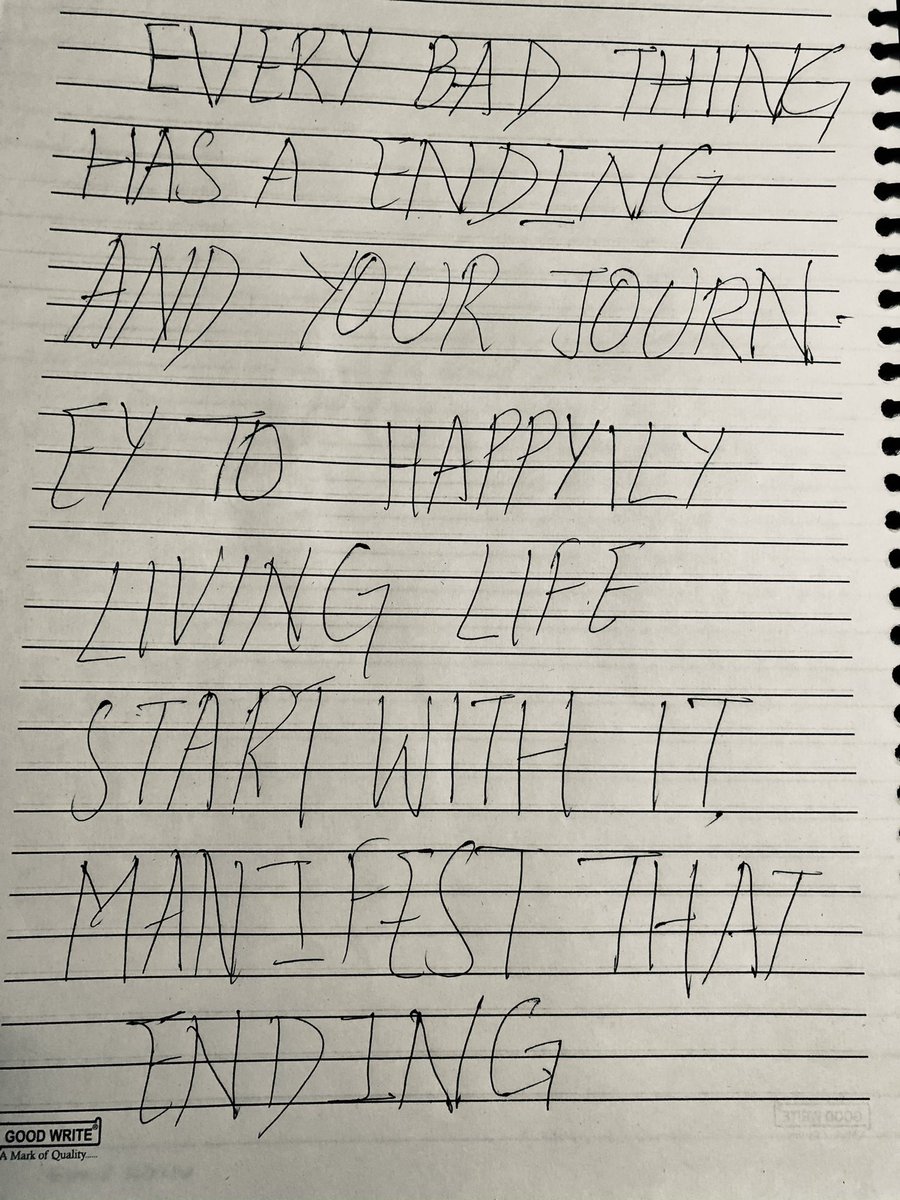 EVERY BAD THING
HAS A ENDING
AND YOUR JOURN-
EY TO HAPPYILY
LIVING LIFE
START WITH IT,
MANIFEST THAT
ENDING
GOOD WRITE®
A Mark of Quality.....